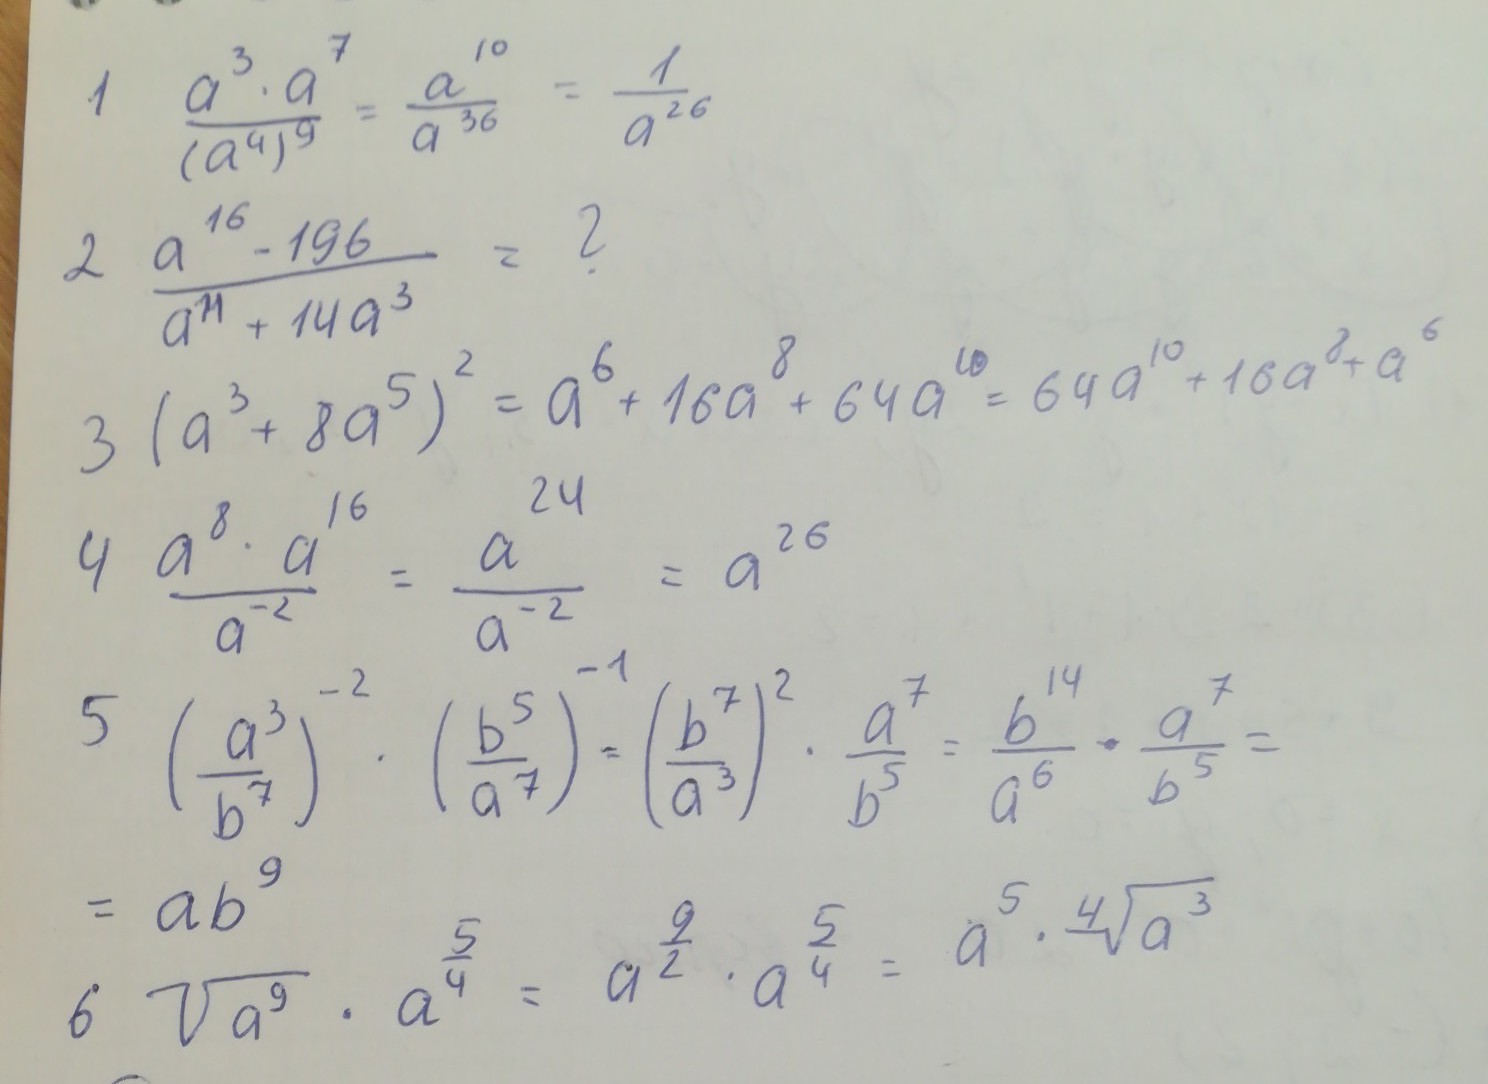 1 a³·a⁷/(a⁴)⁹ = a¹⁰/a³⁶ = 1/a²⁶
2 (a¹⁶-196)/(a¹¹+14a³) = ?
3 (a³+8a⁵)² = a⁶+16a⁸+64a¹⁰ = 64a¹⁰+16a⁸+a⁶
4 a⁸·a¹⁶/a⁻² = a²⁴/a⁻² = a²⁶
5 (a³/b⁷)⁻² · (b⁵/a⁷)⁻¹ = (b⁷/a³)² · a⁷/b⁵ = b¹⁴/a⁶ · a⁷/b⁵ =
= ab⁹
6 √(a⁹) · a^(5/4) = a^(9/2) · a^(5/4) = a⁵ · ⁴√(a³)